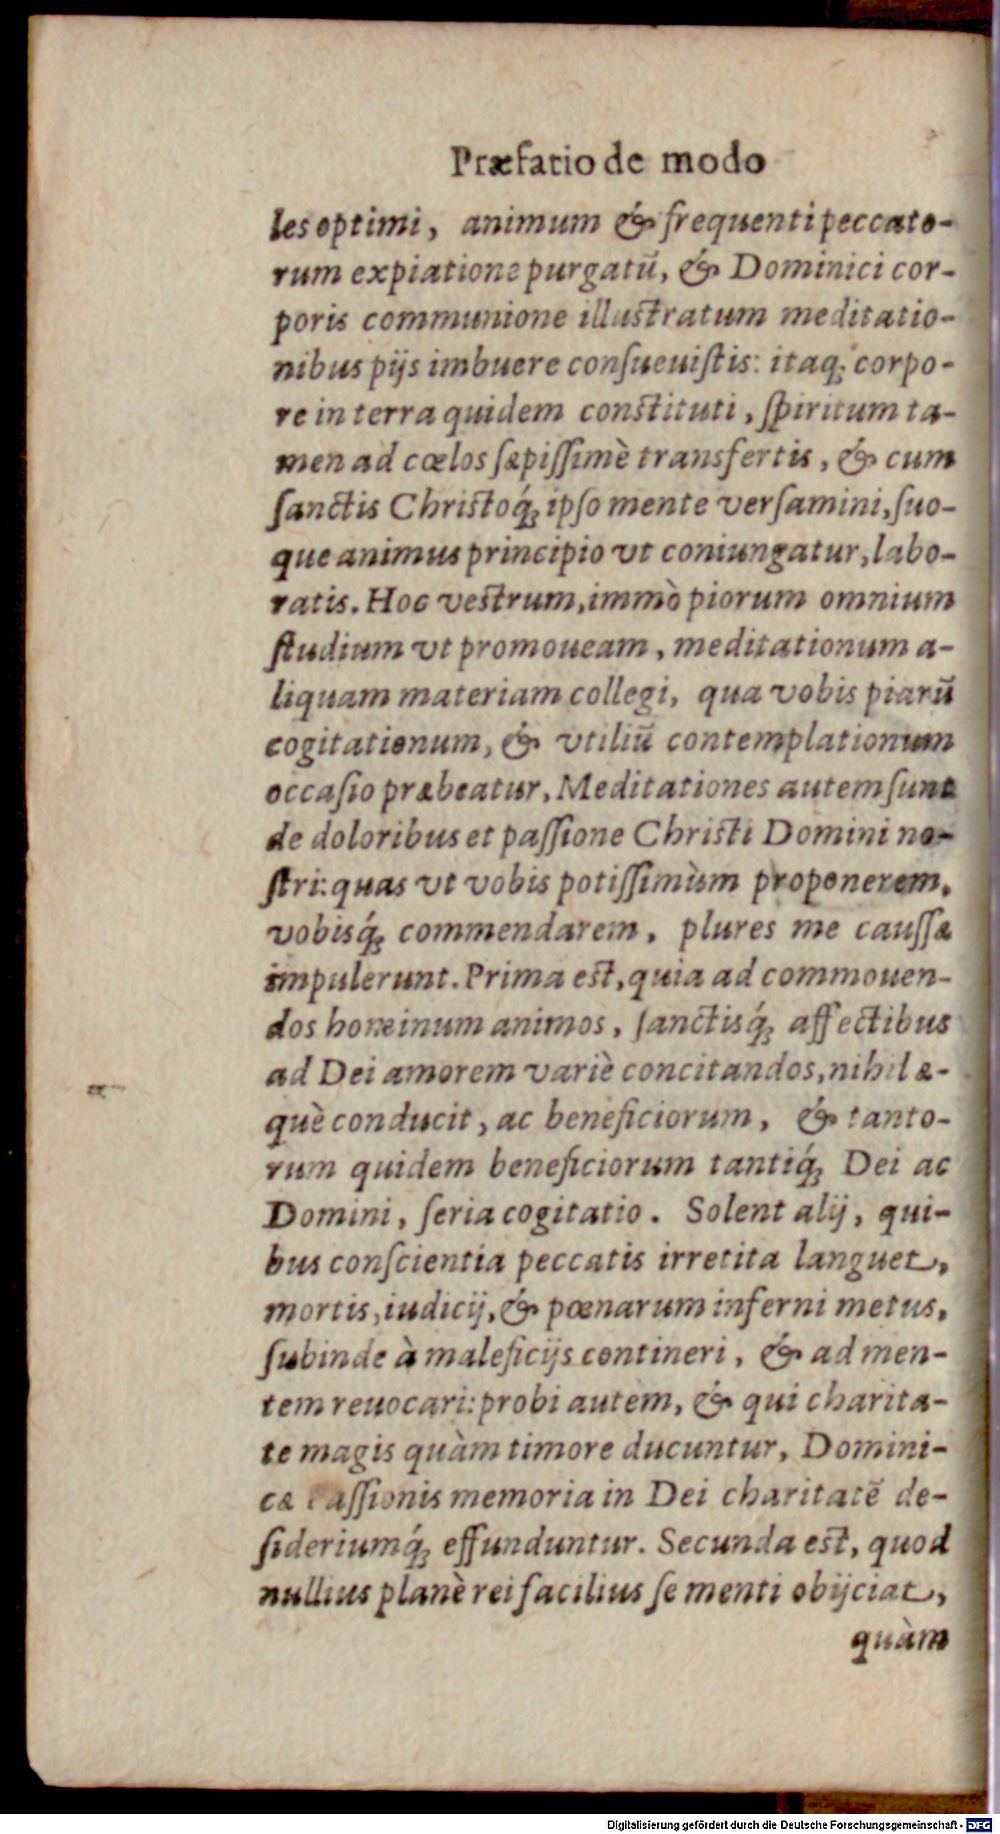 Præfatio de modo
les optimi, animum & frequenti peccato-
rum expiatione purgatū, & Dominici cor-
poris communione illustratum meditatio-
nibus pijs imbuere conſueuiſtis: itaq; corpo-
re in terra quidem constituti, ſpiritum ta-
men ad cœlos ſæpiſſimè transfertis, & cum
ſanctis Christoq́; ipſo mente verſamini, ſuo-
que animus principio vt coniungatur, labo-
ratis. Hoc vestrum, immò piorum omnium
ſtudium vt promoueam, meditationum a-
liquam materiam collegi, qua vobis piarū
cogitationum, & vtiliū contemplationum
occaſio præbeatur. Meditationes autem ſunt
de doloribus et paſſione Christi Domini no-
ſtri: quas vt vobis potiſſimùm proponerem,
vobisq́; commendarem, plures me cauſſæ
impulerunt. Prima est, quia ad commouen-
dos hominum animos, ſanctisq́; affectibus
ad Dei amorem variè concitandos, nihil æ-
què conducit, ac beneficiorum, & tanto-
rum quidem beneficiorum tantiq́; Dei ac
Domini, ſeria cogitatio. Solent alij, qui-
bus conſcientia peccatis irretita languet,
mortis, iudicij, & pœnarum inferni metus,
ſubinde à maleficijs contineri, & ad men-
tem reuocari: probi autem, & qui charita-
te magis quàm timore ducuntur, Domini-
cæ Paſſionis memoria in Dei charitatē de-
ſideriumq́; effunduntur. Secunda est, quod
nullius planè rei facilius ſe menti obijciat,
quàm
Digitalisierung gefördert durch die Deutsche Forschungsgemeinschaft - DFG